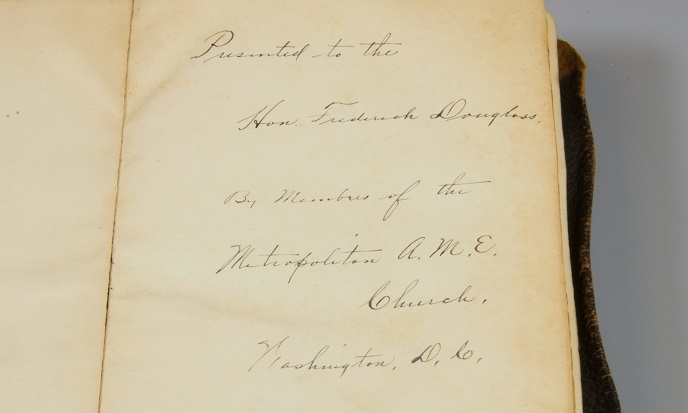 Presented to the
Hon. Frederick Douglass.
By Members of the
Metropolitan A. M. E.
Church.
Washington, D. C.